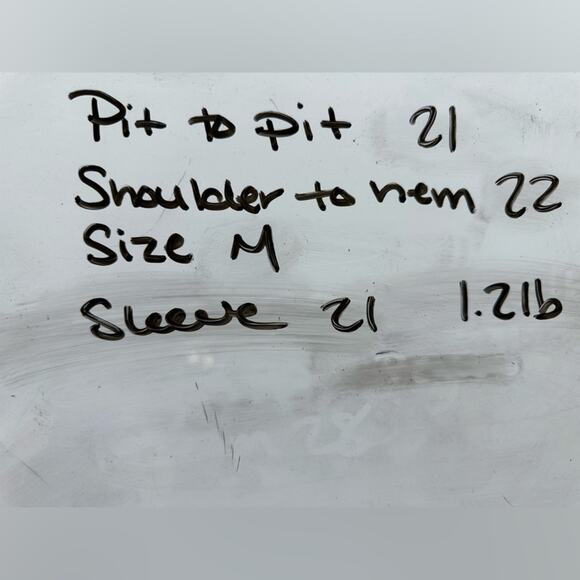 Pit to pit 21
Shoulder to hem 22
Size M
Sleeve 21 1.2lb